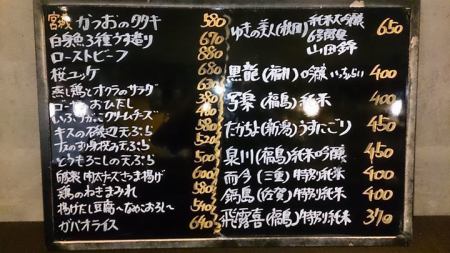 宮城 かつおのタタキ 580
白身魚3種うす造り 670
ローストビーフ 880
桜ユッケ 680
蒸し鶏とオクラのサラダ
おひたし 380
いぶりがっこクリームチーズ 400
キスの磯辺天ぷら 580
すり身天ぷら 520
とうもろこしの天ぷら 500
チーズ揚げ 600
鶏のねぎまみれ 580
揚げだし豆腐〜なめこおろし〜 540
ガパオライス 640
ゆきの美人(秋田) 純米大吟醸 6号酵母 山田錦 650
黒龍(福井)吟醸 いっちょらい 400
写楽(福島)純米 400
たかちよ(新潟)うすにごり 450
泉川(福島)純米吟醸 450
而今(三重)特別純米 400
鍋島(佐賀)特別純米 400
飛露喜(福島)特別純米 370